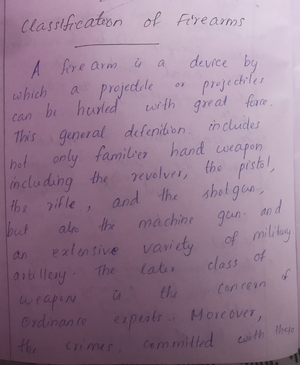 Classification of Firearms
A fire arm is a device by
which a projectile or projectiles
can be hurled with great force.
This general defenition includes
not only familier hand weapon
including the revolver, the pistol,
the rifle, and the shotgun,
but also the machine gun and
an extensive variety of military
artillery. The later class of
weapons is the concern of
Ordinance experts. Moreover,
the crimes committed with these